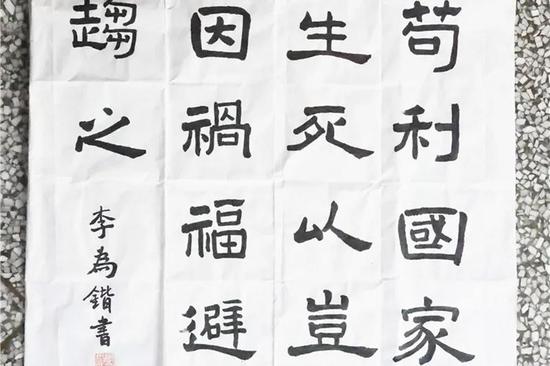 苟利國家
生死以豈
因禍福避
趨之
李為鍇書